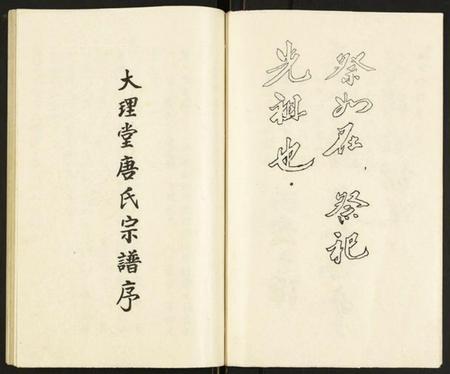 祭如在，祭祀
光祖也．
大理堂唐氏宗譜序